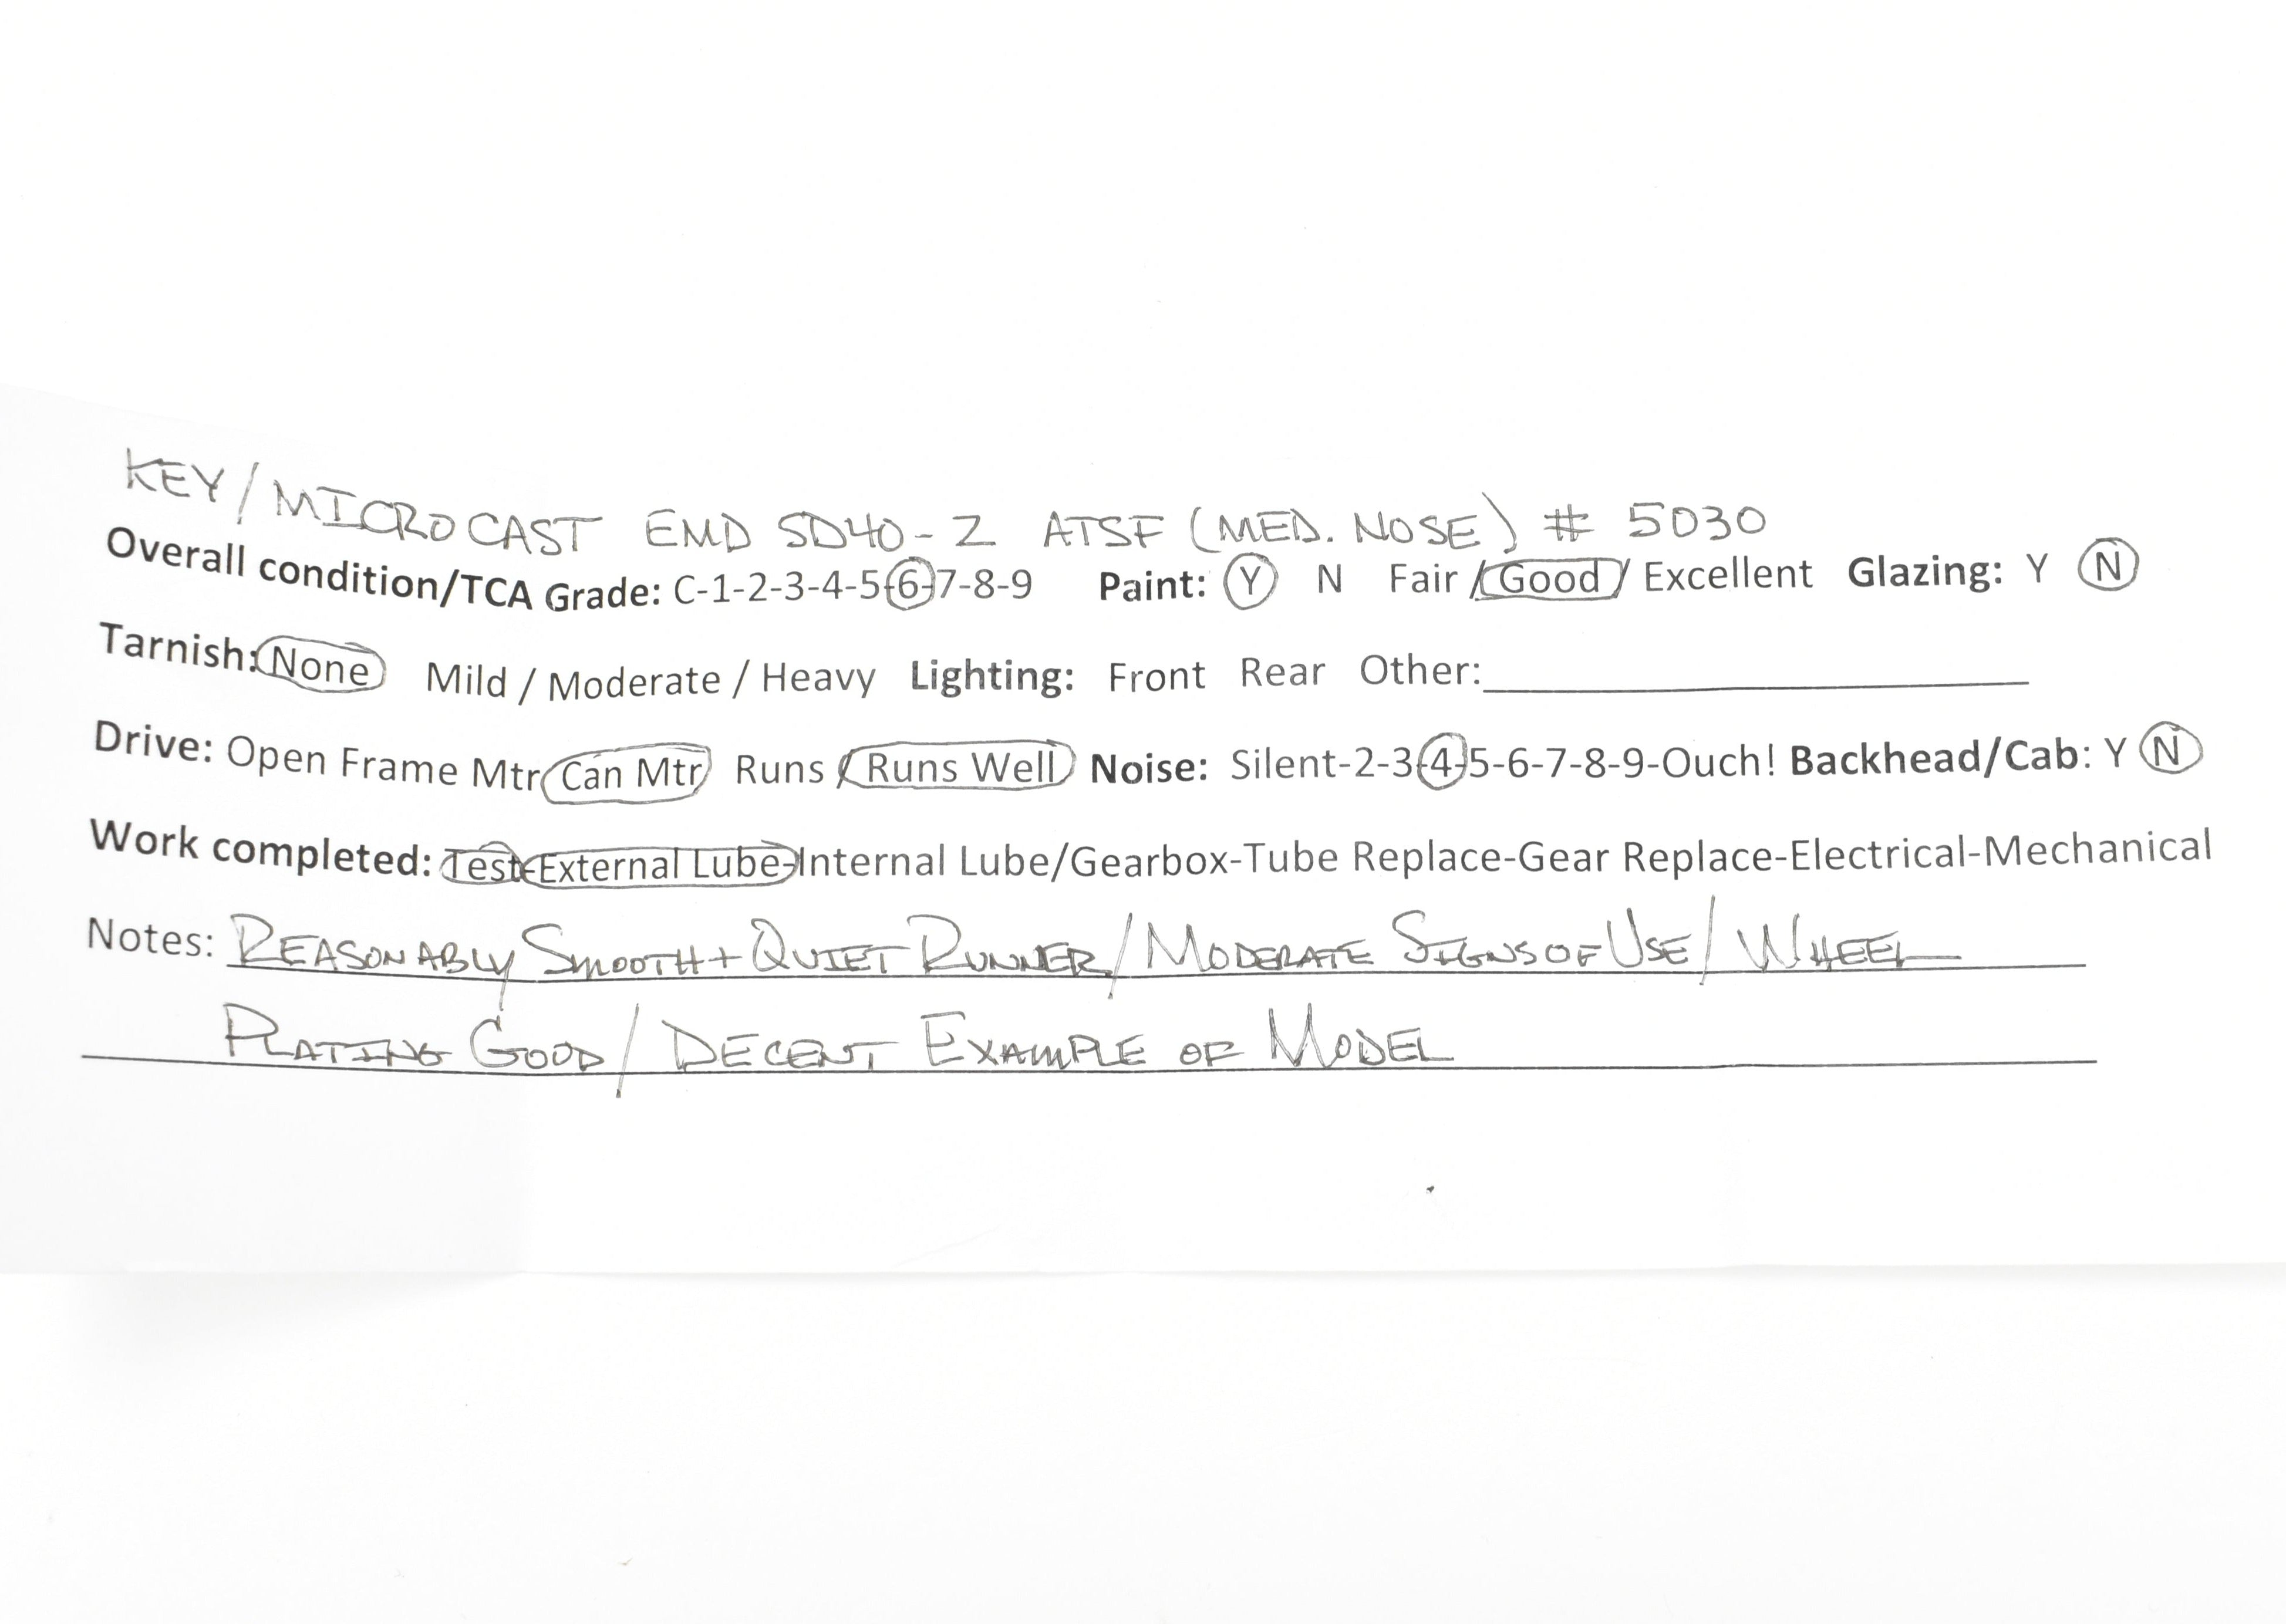 KEY/MICROCAST EMD SD40-2 ATSF (MED. NOSE) # 5030
Overall condition/TCA Grade: C-1-2-3-4-5-6-7-8-9 Paint: Y N Fair / Good / Excellent Glazing: Y N
Tarnish: None Mild / Moderate / Heavy Lighting: Front Rear Other:
Drive: Open Frame Mtr Can Mtr Runs / Runs Well Noise: Silent-2-3-4-5-6-7-8-9-Ouch! Backhead/Cab: Y N
Work completed: Test-External Lube-Internal Lube/Gearbox-Tube Replace-Gear Replace-Electrical-Mechanical
Notes: REASONABLY SMOOTH + QUIET RUNNER / MODERATE SIGNS OF USE / WHEEL
PLATING GOOD / DECENT EXAMPLE OF MODEL